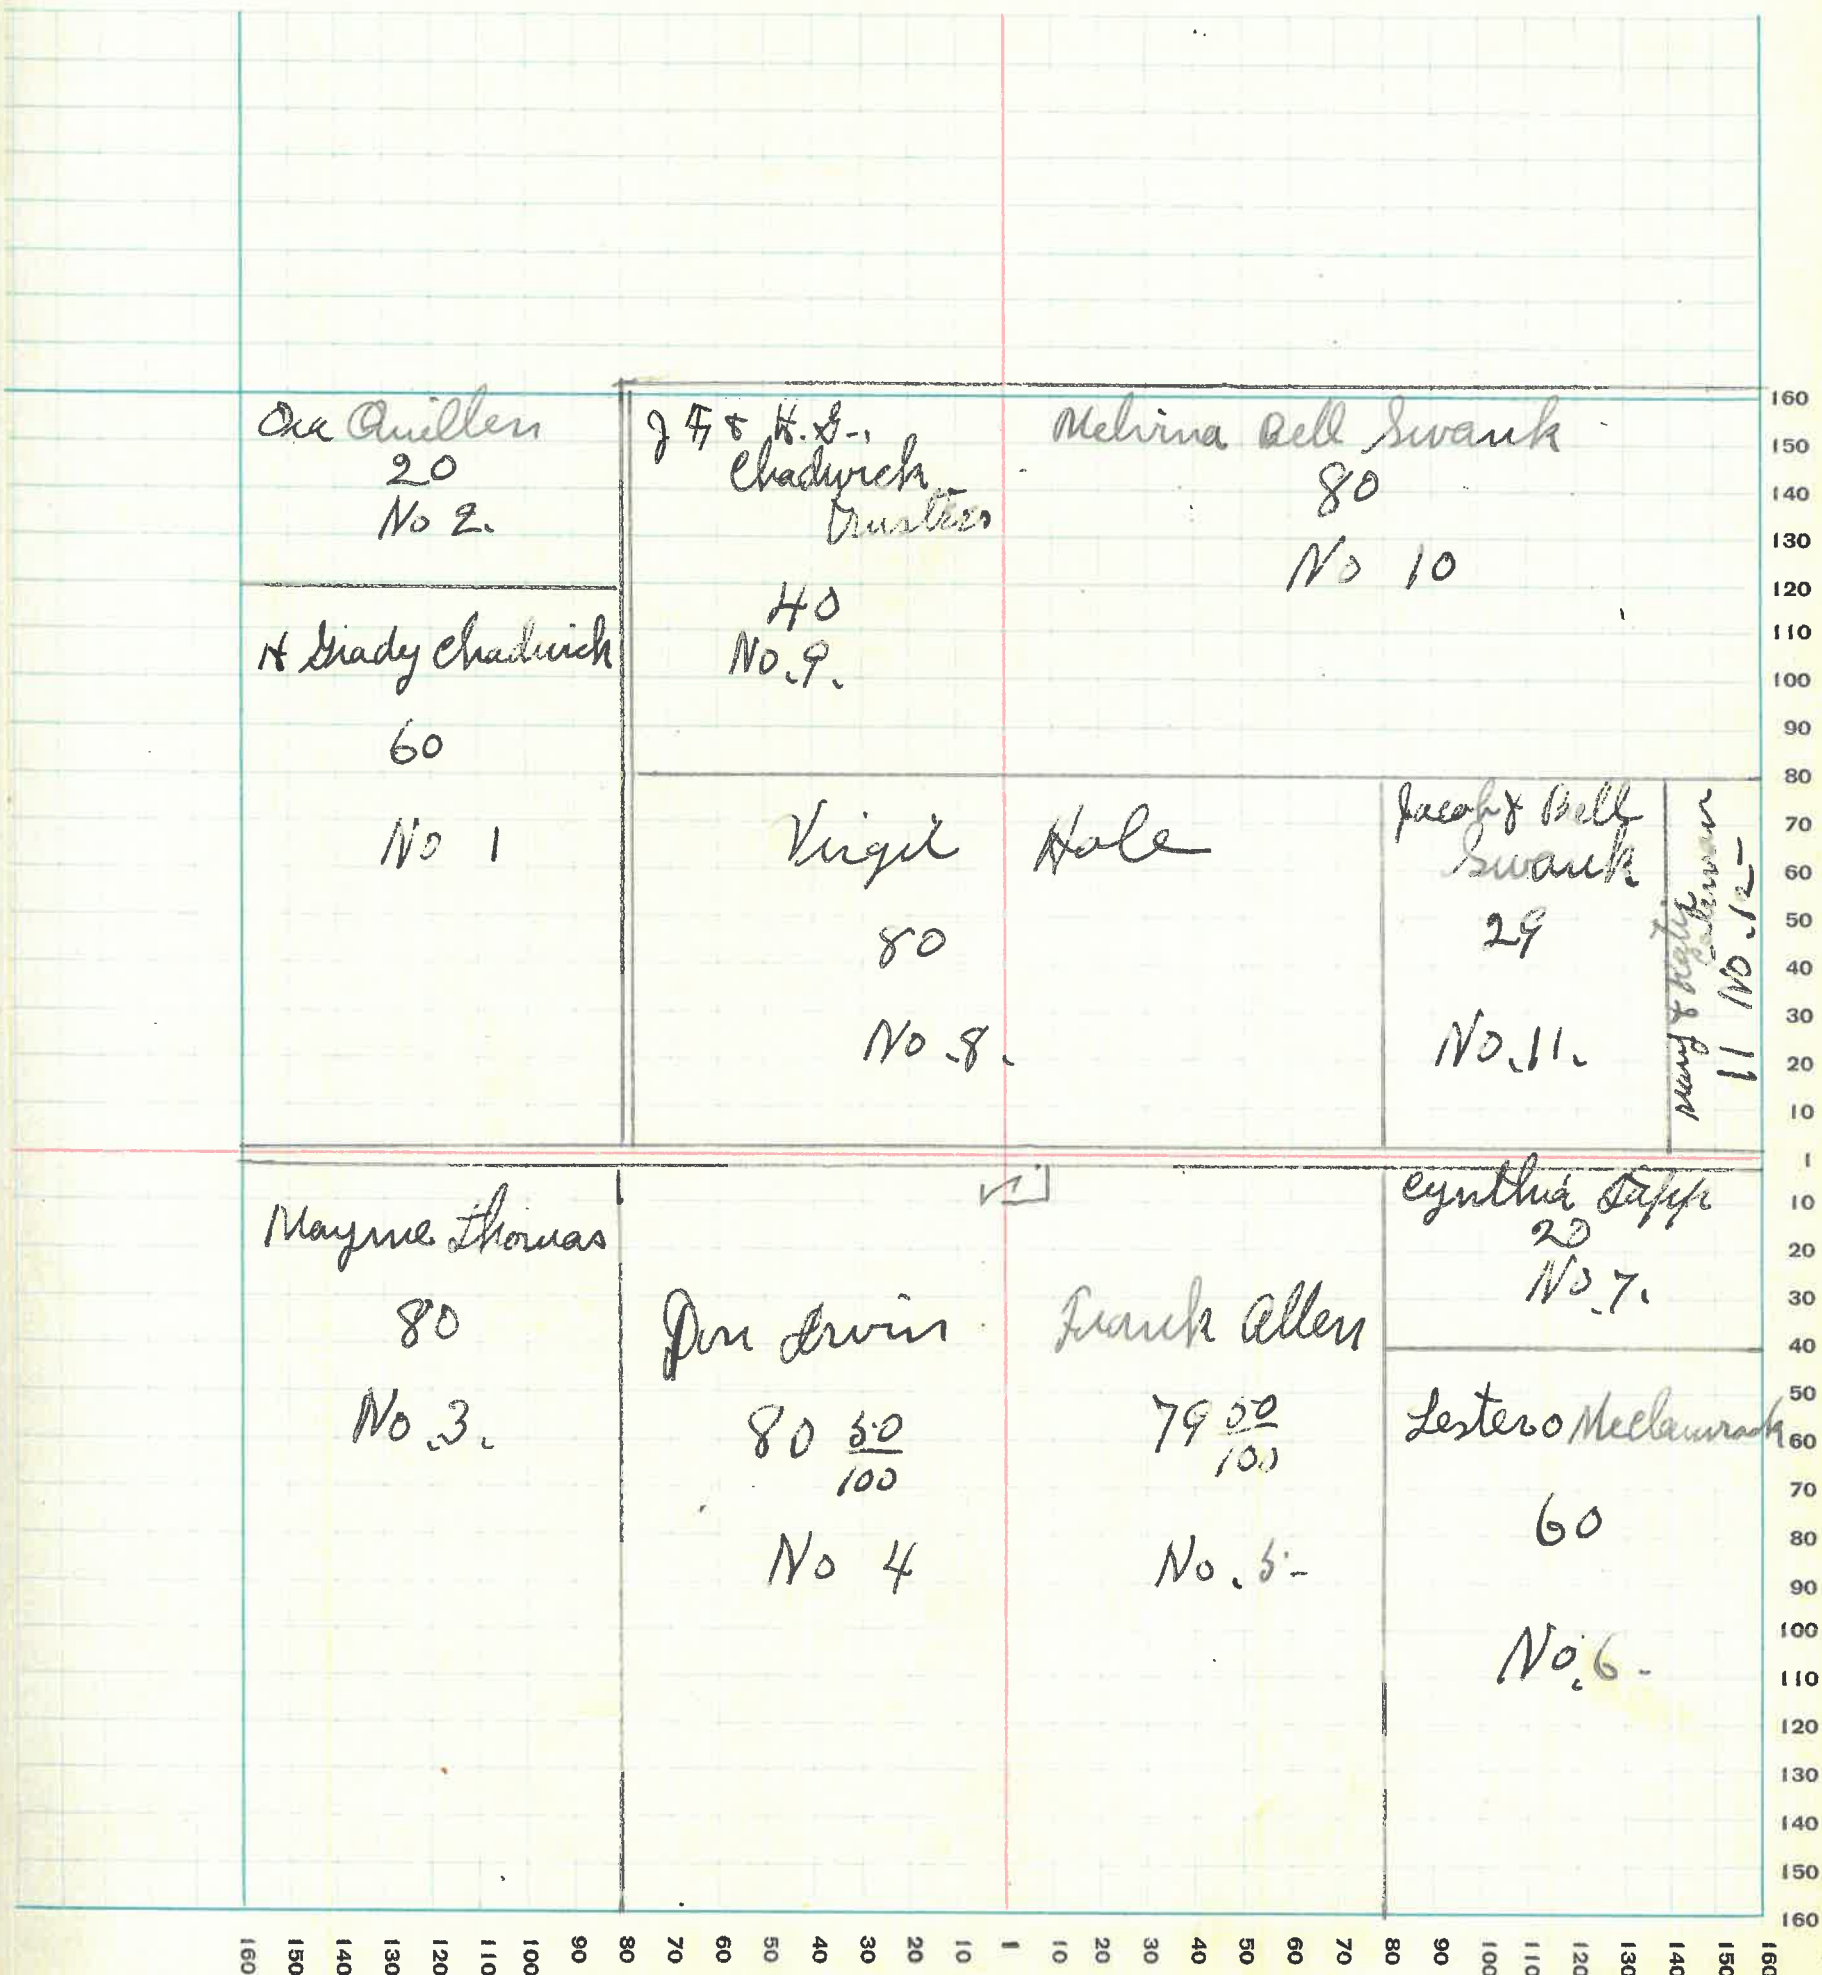 Ora Quillen
20
No 2.
H Grady Chadwick
60
No 1
J F & H. G.
Chadwick
Trustees
40
No. 9.
Melvina Bell Swank
80
No 10
Virgil Hole
80
No. 8.
Jacob & Bell
Swank
29
No. 11.
Mary &
11 No. 12
Mayme Thomas
80
No. 3.
Don Irvin
80 50/100
No 4
Frank Allen
79 50/100
No. 5
Cynthia Tapp
20
No. 7.
Lester O
60
No. 6
160
150
140
130
120
110
100
90
80
70
60
50
40
30
20
10
1
10
20
30
40
50
60
70
80
90
100
110
120
130
140
150
160
160 150 140 130 120 110 100 90 80 70 60 50 40 30 20 10 1 10 20 30 40 50 60 70 80 90 100 110 120 130 140 150 160